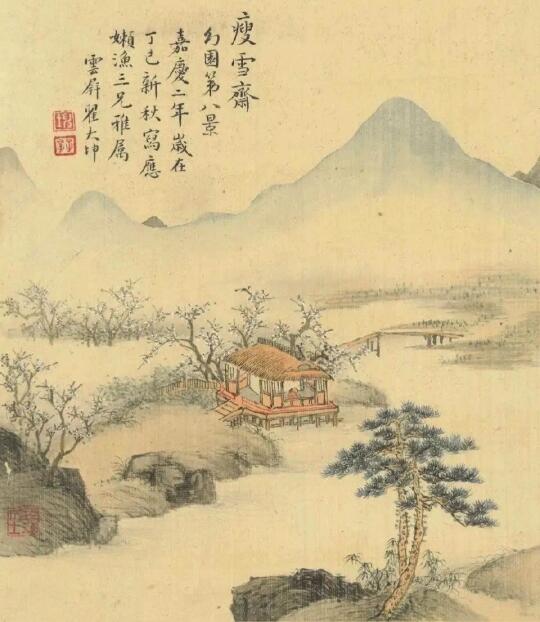 瘦雪齋
幻園第八景
嘉慶二年歲在
丁巳新秋寫應
嬾漁三兄雅属
雲屏瞿大坤